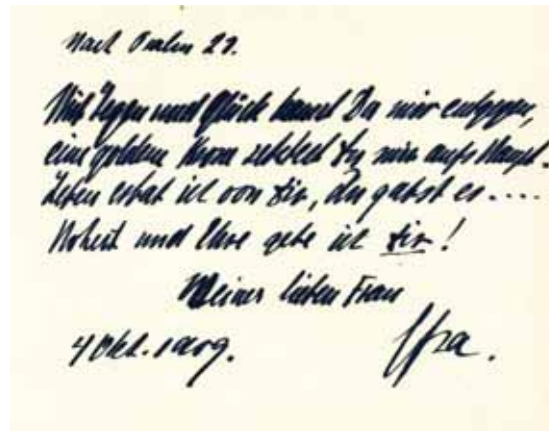 Nach Psalm 21.
Mit Segen und Glück kamst Du mir entgegen,
eine goldene Krone setztest Du mir aufs Haupt.
Leben erbat ich von Dir, du gabst es....
Hoheit und Ehre gebe ich Dir!
Meiner lieben Frau
4 Okt.